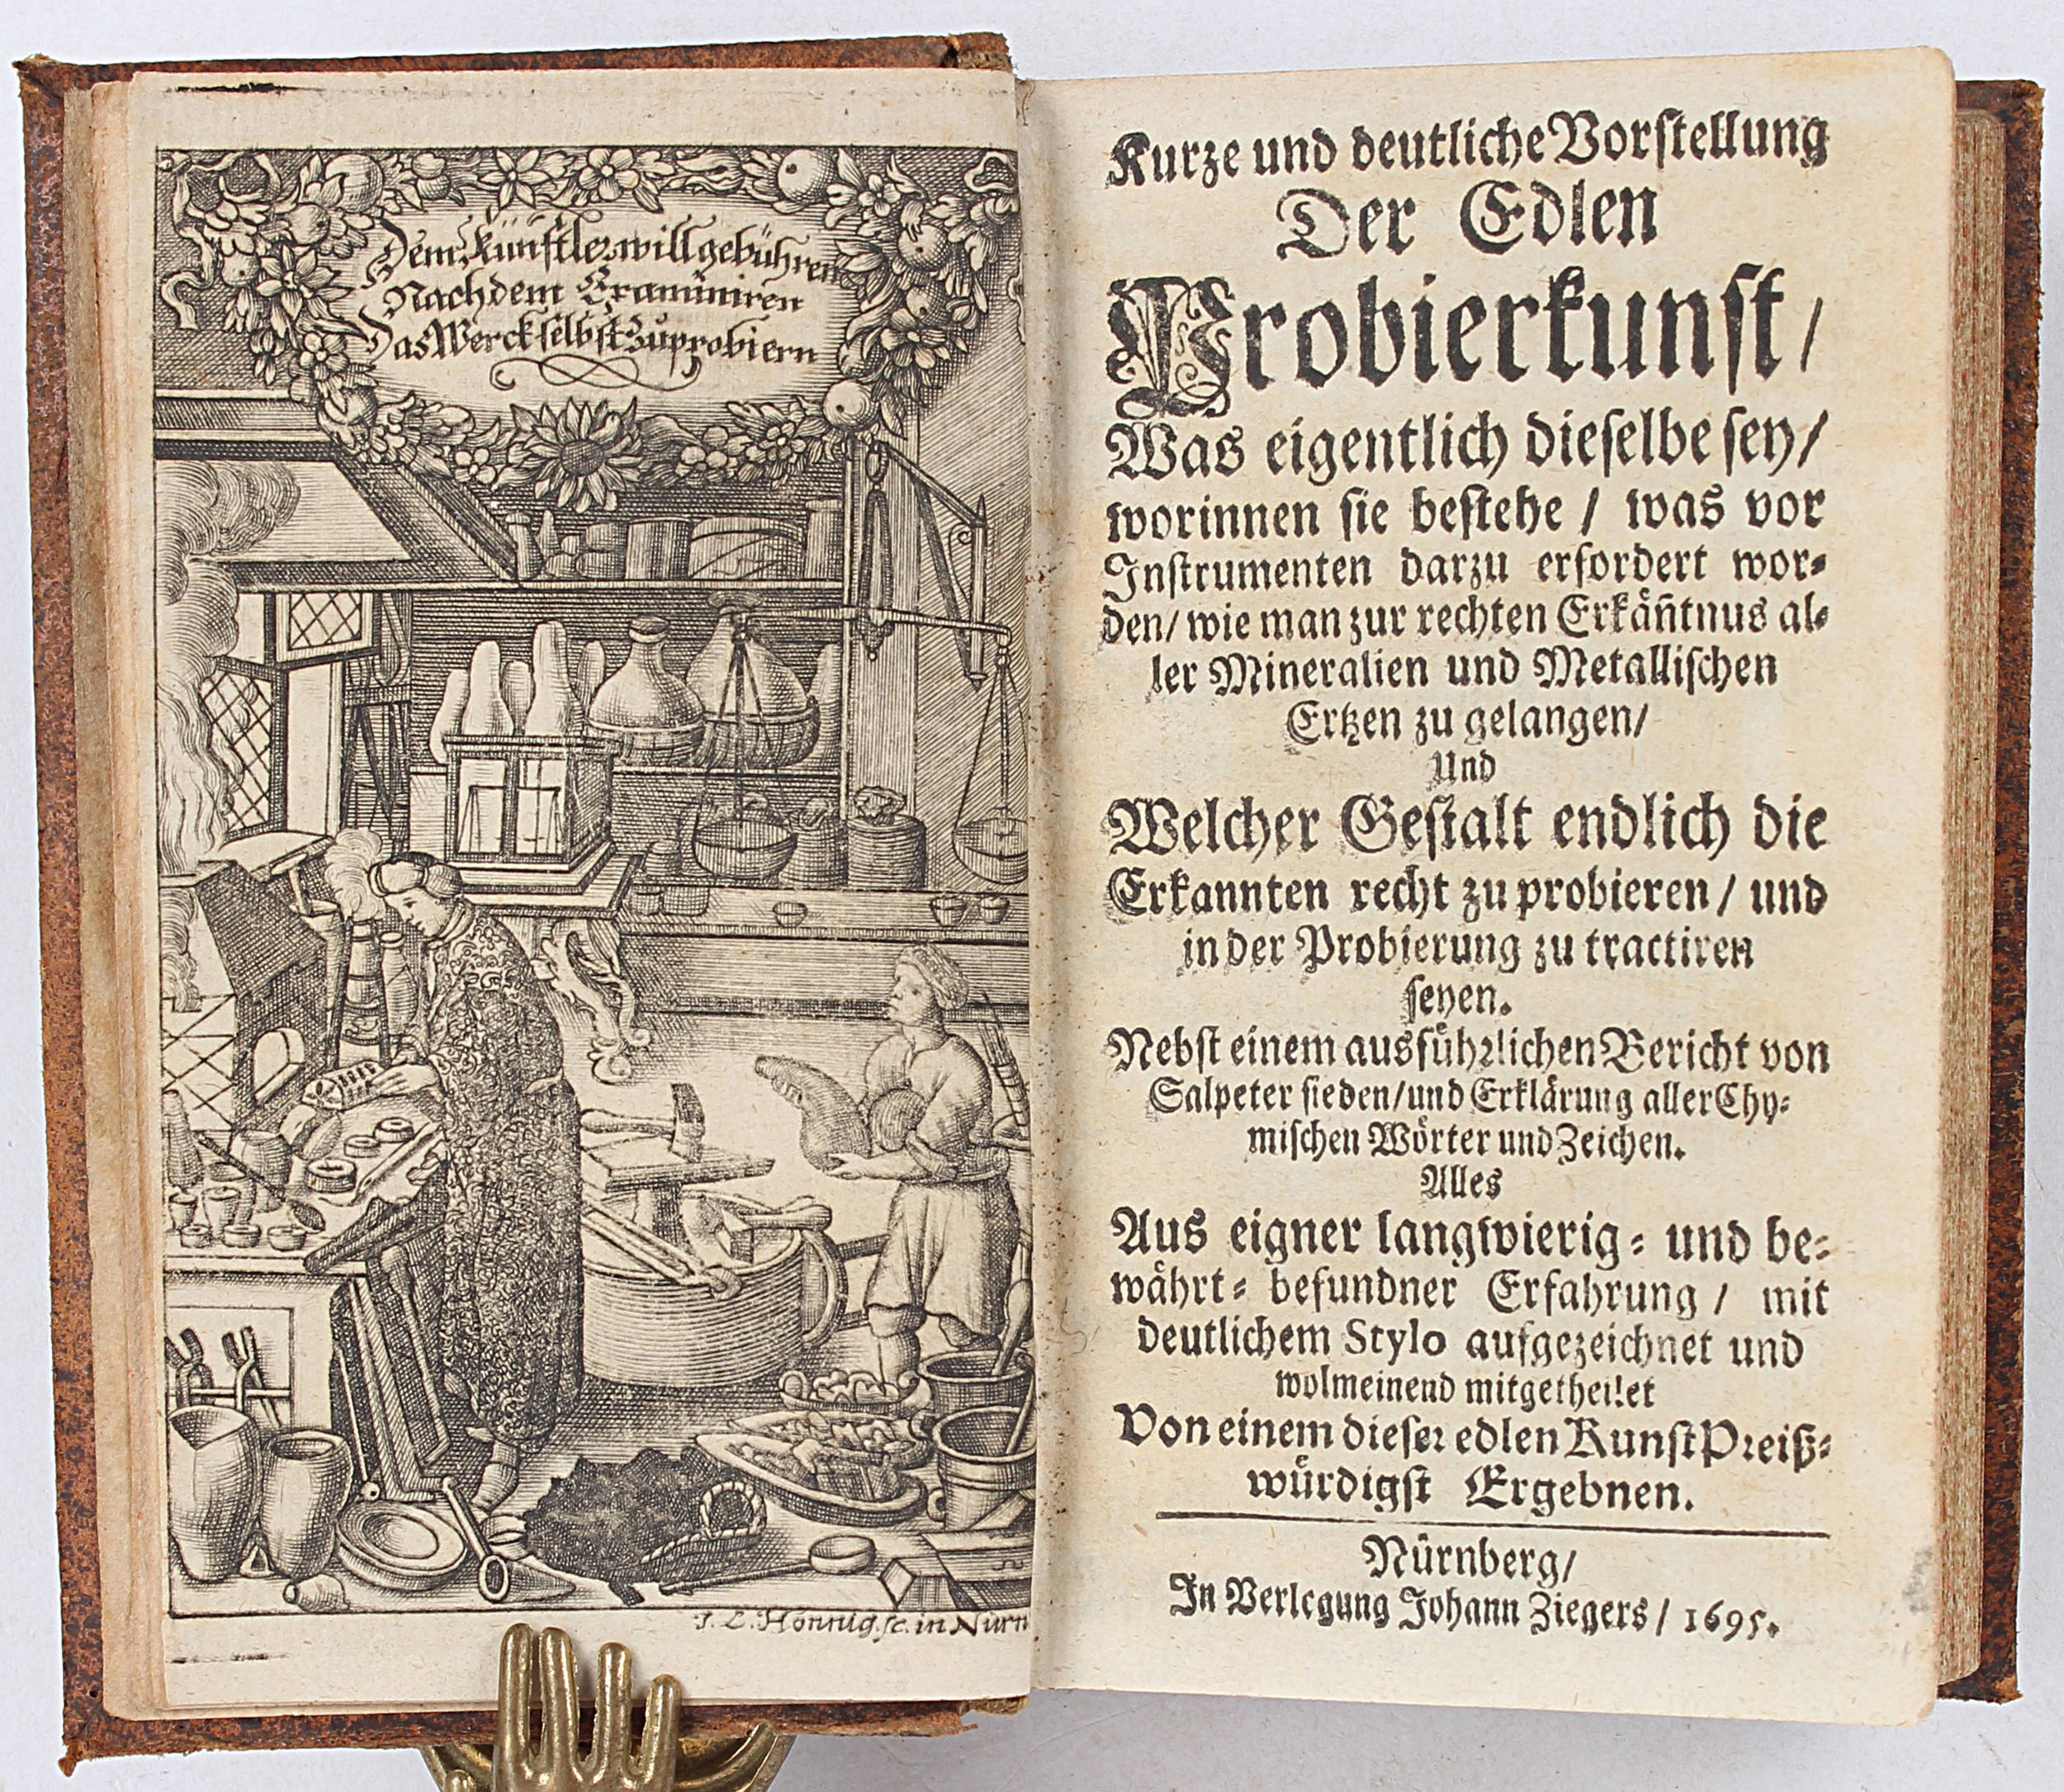 Dem Künstler will gebühren
Nach dem Examiniren
Das Werck selbst zu probiern
J. C. Hönnig. sc. in Nürn
Kurze und deutliche Vorstellung
Der Edlen
Probierkunst /
Was eigentlich dieselbe sey /
worinnen sie bestehe / was vor
Instrumenten darzu erfordert wor-
den / wie man zur rechten Erkäñtnus al-
ler Mineralien und Metallischen
Ertzen zu gelangen /
Und
Welcher Gestalt endlich die
Erkannten recht zu probieren / und
in der Probierung zu tractiren
seyen.
Nebst einem ausführlichen Bericht von
Salpeter sieden / und Erklärung aller Chy-
mischen Wörter und Zeichen.
Alles
Aus eigner langwierig- und be-
währt- befundner Erfahrung / mit
deutlichem Stylo aufgezeichnet und
wolmeinend mitgetheilet
Von einem dieser edlen Kunst Preiß-
würdigst Ergebnen.
Nürnberg /
In Verlegung Johann Ziegers / 1695.